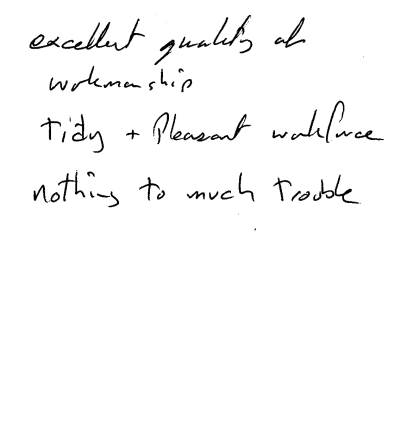 excellent quality of
workmanship
Tidy + Pleasant workforce
nothing to much trouble